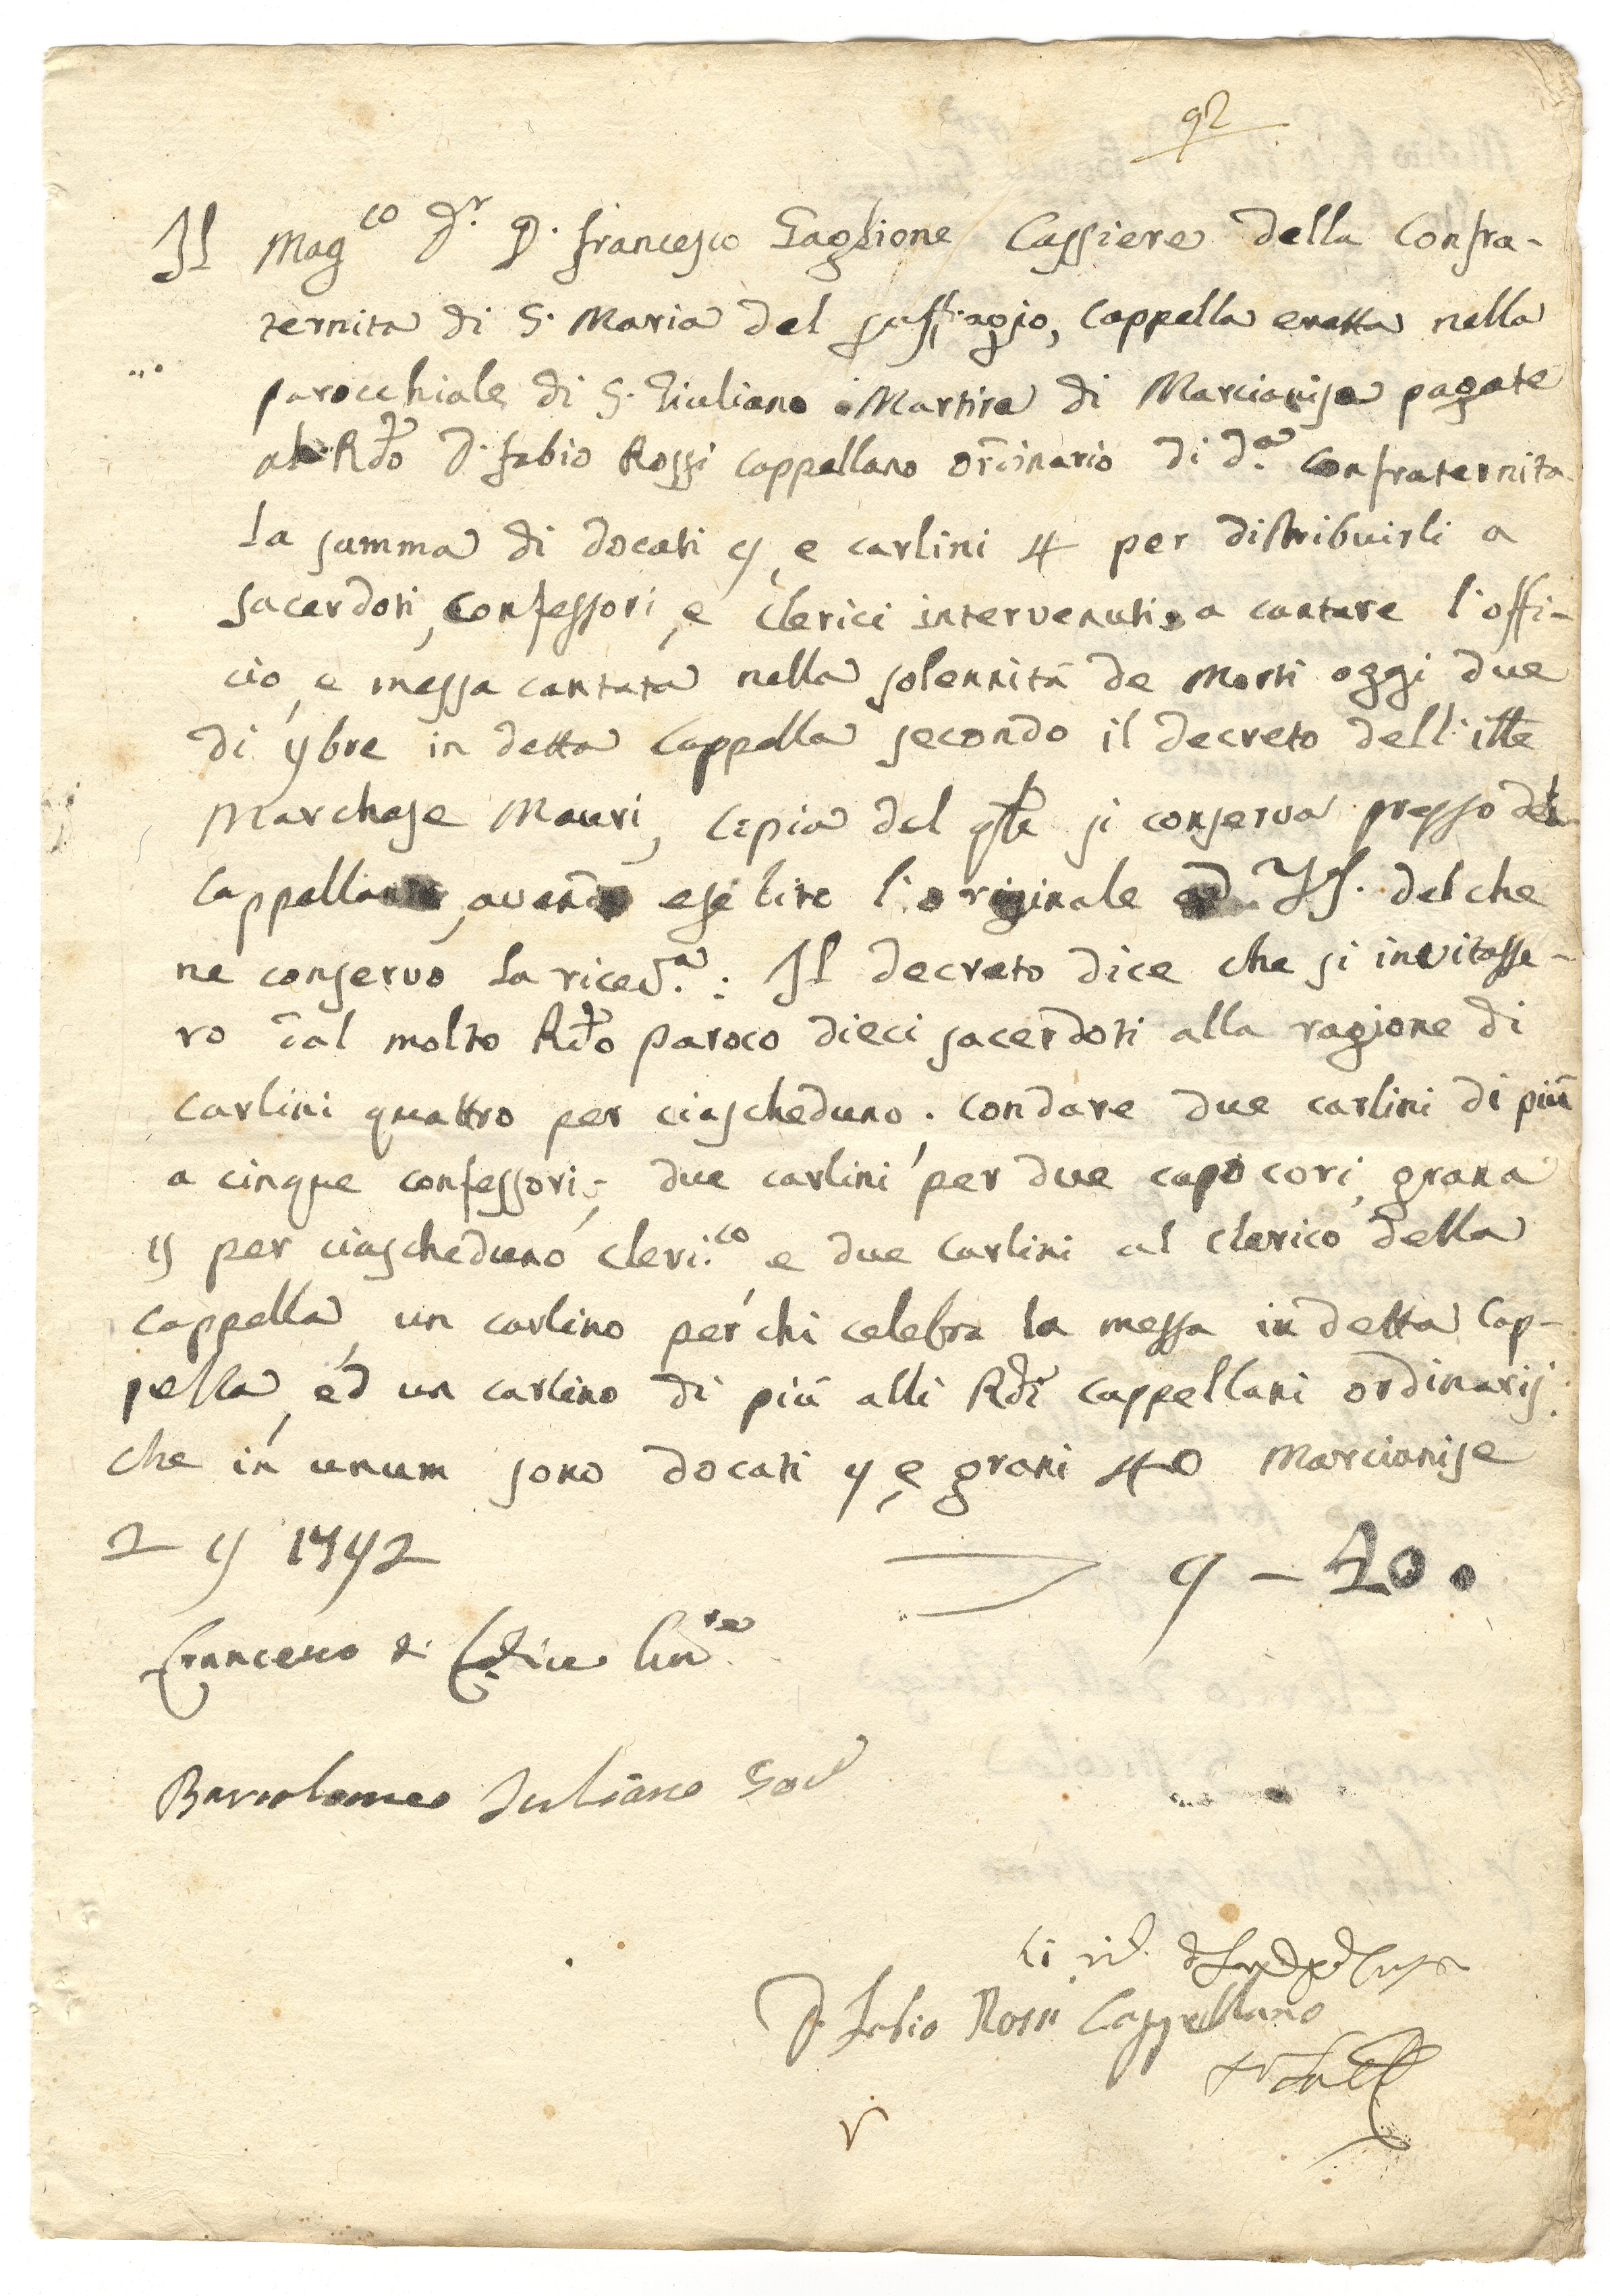 92
Il Mag.co Dr. D. Francesco Taglione Cassiere della Confra-
ternita di S. Maria del suffragio, Cappella eretta nella
parocchiale di S. Giuliano Martire di Marcianise pagate
al Rdo D. Fabio Rossi cappellano ordinario di d.a Confraternita
la summa di docati 9, e carlini 4 per distribuirli a
sacerdoti, confessori, e clerici intervenuti a cantare l'offi-
cio, e messa cantata nella solennità de Morti oggi due
di 9bre in detta Cappella secondo il decreto dell'Ille
Marchese Mauri, copia del qle si conserva presso
Cappellano, avendo l'originale delche
ne conservo la riced.a: Il decreto dice che si invitasse-
ro dal molto Rdo Paroco dieci sacerdoti alla ragione di
carlini quattro per ciascheduno. condare due carlini di più
a cinque confessori; due carlini per due capo cori, grana
15 per ciascheduno cleri.co e due carlini al clerico della
Cappella, un carlino per chi celebra la messa in detta Cap-
pella, ed un carlino di più alli Rdi Cappellani ordinarij
che in unum sono docati 9, e grani 40 Marcianise
2 9 1792
9 - 40.
Francesco di
Bartolomeo Iuliano
D. Fabio Rossi Cappellano